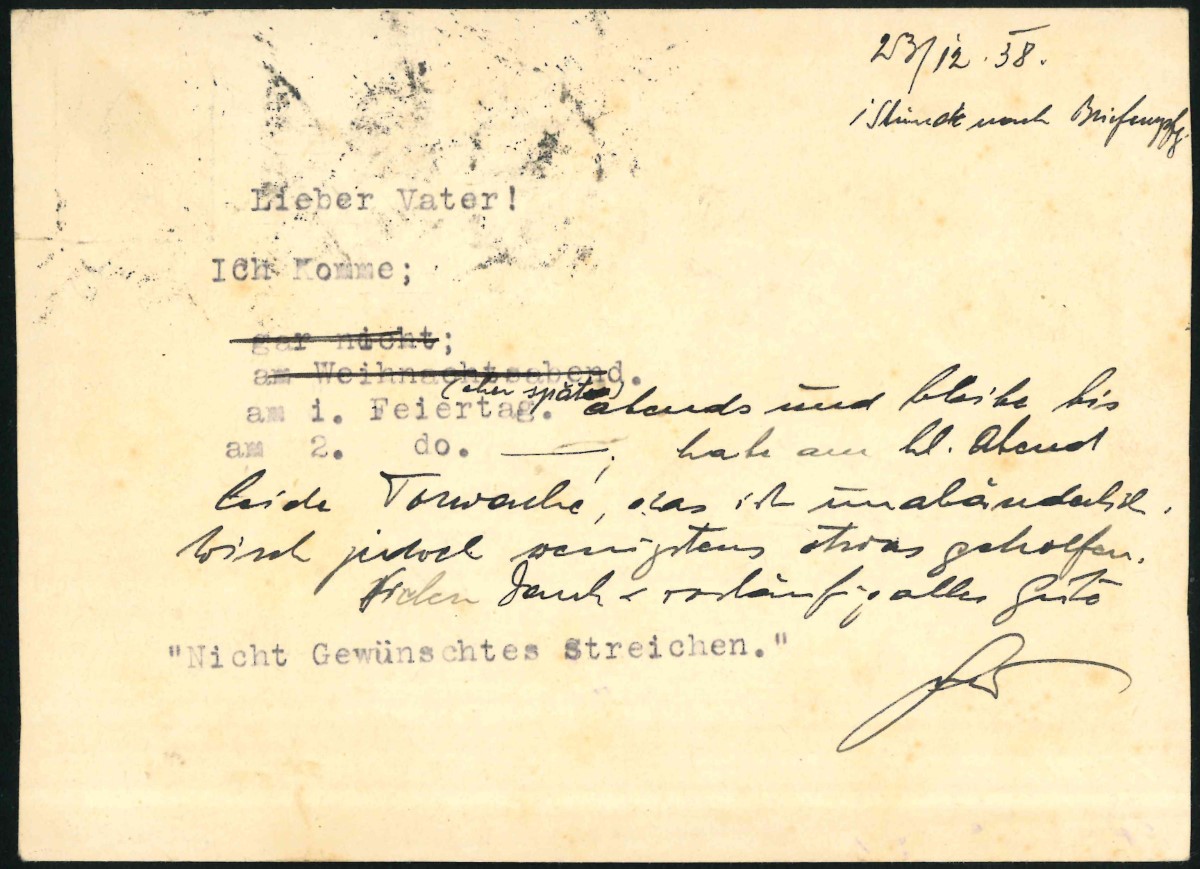 23/12.38.
1 Stunde nach Briefempfg.
Lieber Vater!
ICh Komme;
gar nicht;
am Weihnachtsabend.
am 1. Feiertag. (eher später) abends und bleibe bis
am 2. do. ———; hab am hl. Abend
leider Torwache, das ist unabänderlich.
Wird jedoch wenigstens etwas geholfen.
Vielen Dank & vorläufig alles Gute
"Nicht Gewünschtes streichen."